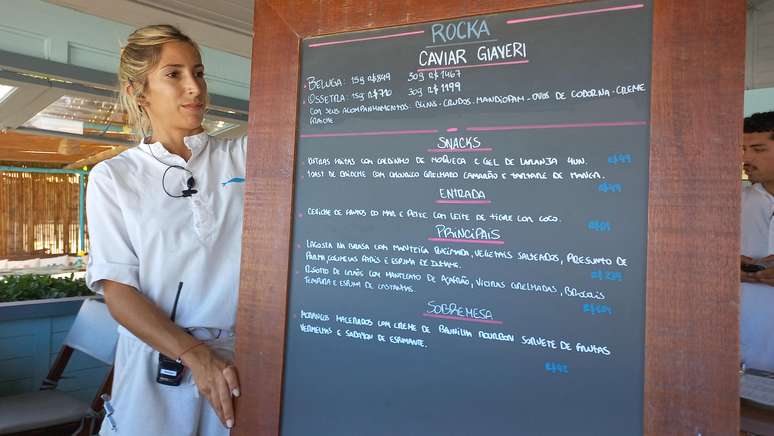 ROCKA
CAVIAR GIAVERI
• BELUGA: 15g R$849 30g R$1467
• OSSETRA: 15g R$710 30g R$1199
COM SEUS ACOMPANHAMENTOS - BLINIS - CRUDOS - MANDIOPAM - OVOS DE CODORNA - CREME
FRAICHE
SNACKS
• OSTRAS FRITAS COM CALDINHO DE MOQUECA E GEL DE LARANJA 4UN. R$49
• TOAST DE BRIOCHE COM CHOURIÇO GRELHADO CAMARÃO E TARTARE DE MANGA.
R$49
ENTRADA
CEVICHE DE FRUTOS DO MAR E PEIXE COM LEITE DE TIGRE COM COCO.
PRINCIPAIS
LAGOSTA NA BRASA COM MANTEIGA QUEIMADA, VEGETAIS SALTEADOS, PRESUNTO DE
PARMA, E ESPUMA DE INHAME.
RISOTTO DE LIMÃO COM MANTECATO DE AÇAFRÃO, VIEIRAS GRELHADAS, BRÓCOLIS
TEMPURA E ESPUMA DE CASTANHAS.
SOBREMESA
MORANGOS MACERADOS COM CREME DE BAUNILHA BOURBON SORVETE DE FRUTAS
VERMELHAS E SABAYON DE ESPUMANTE.
R$42